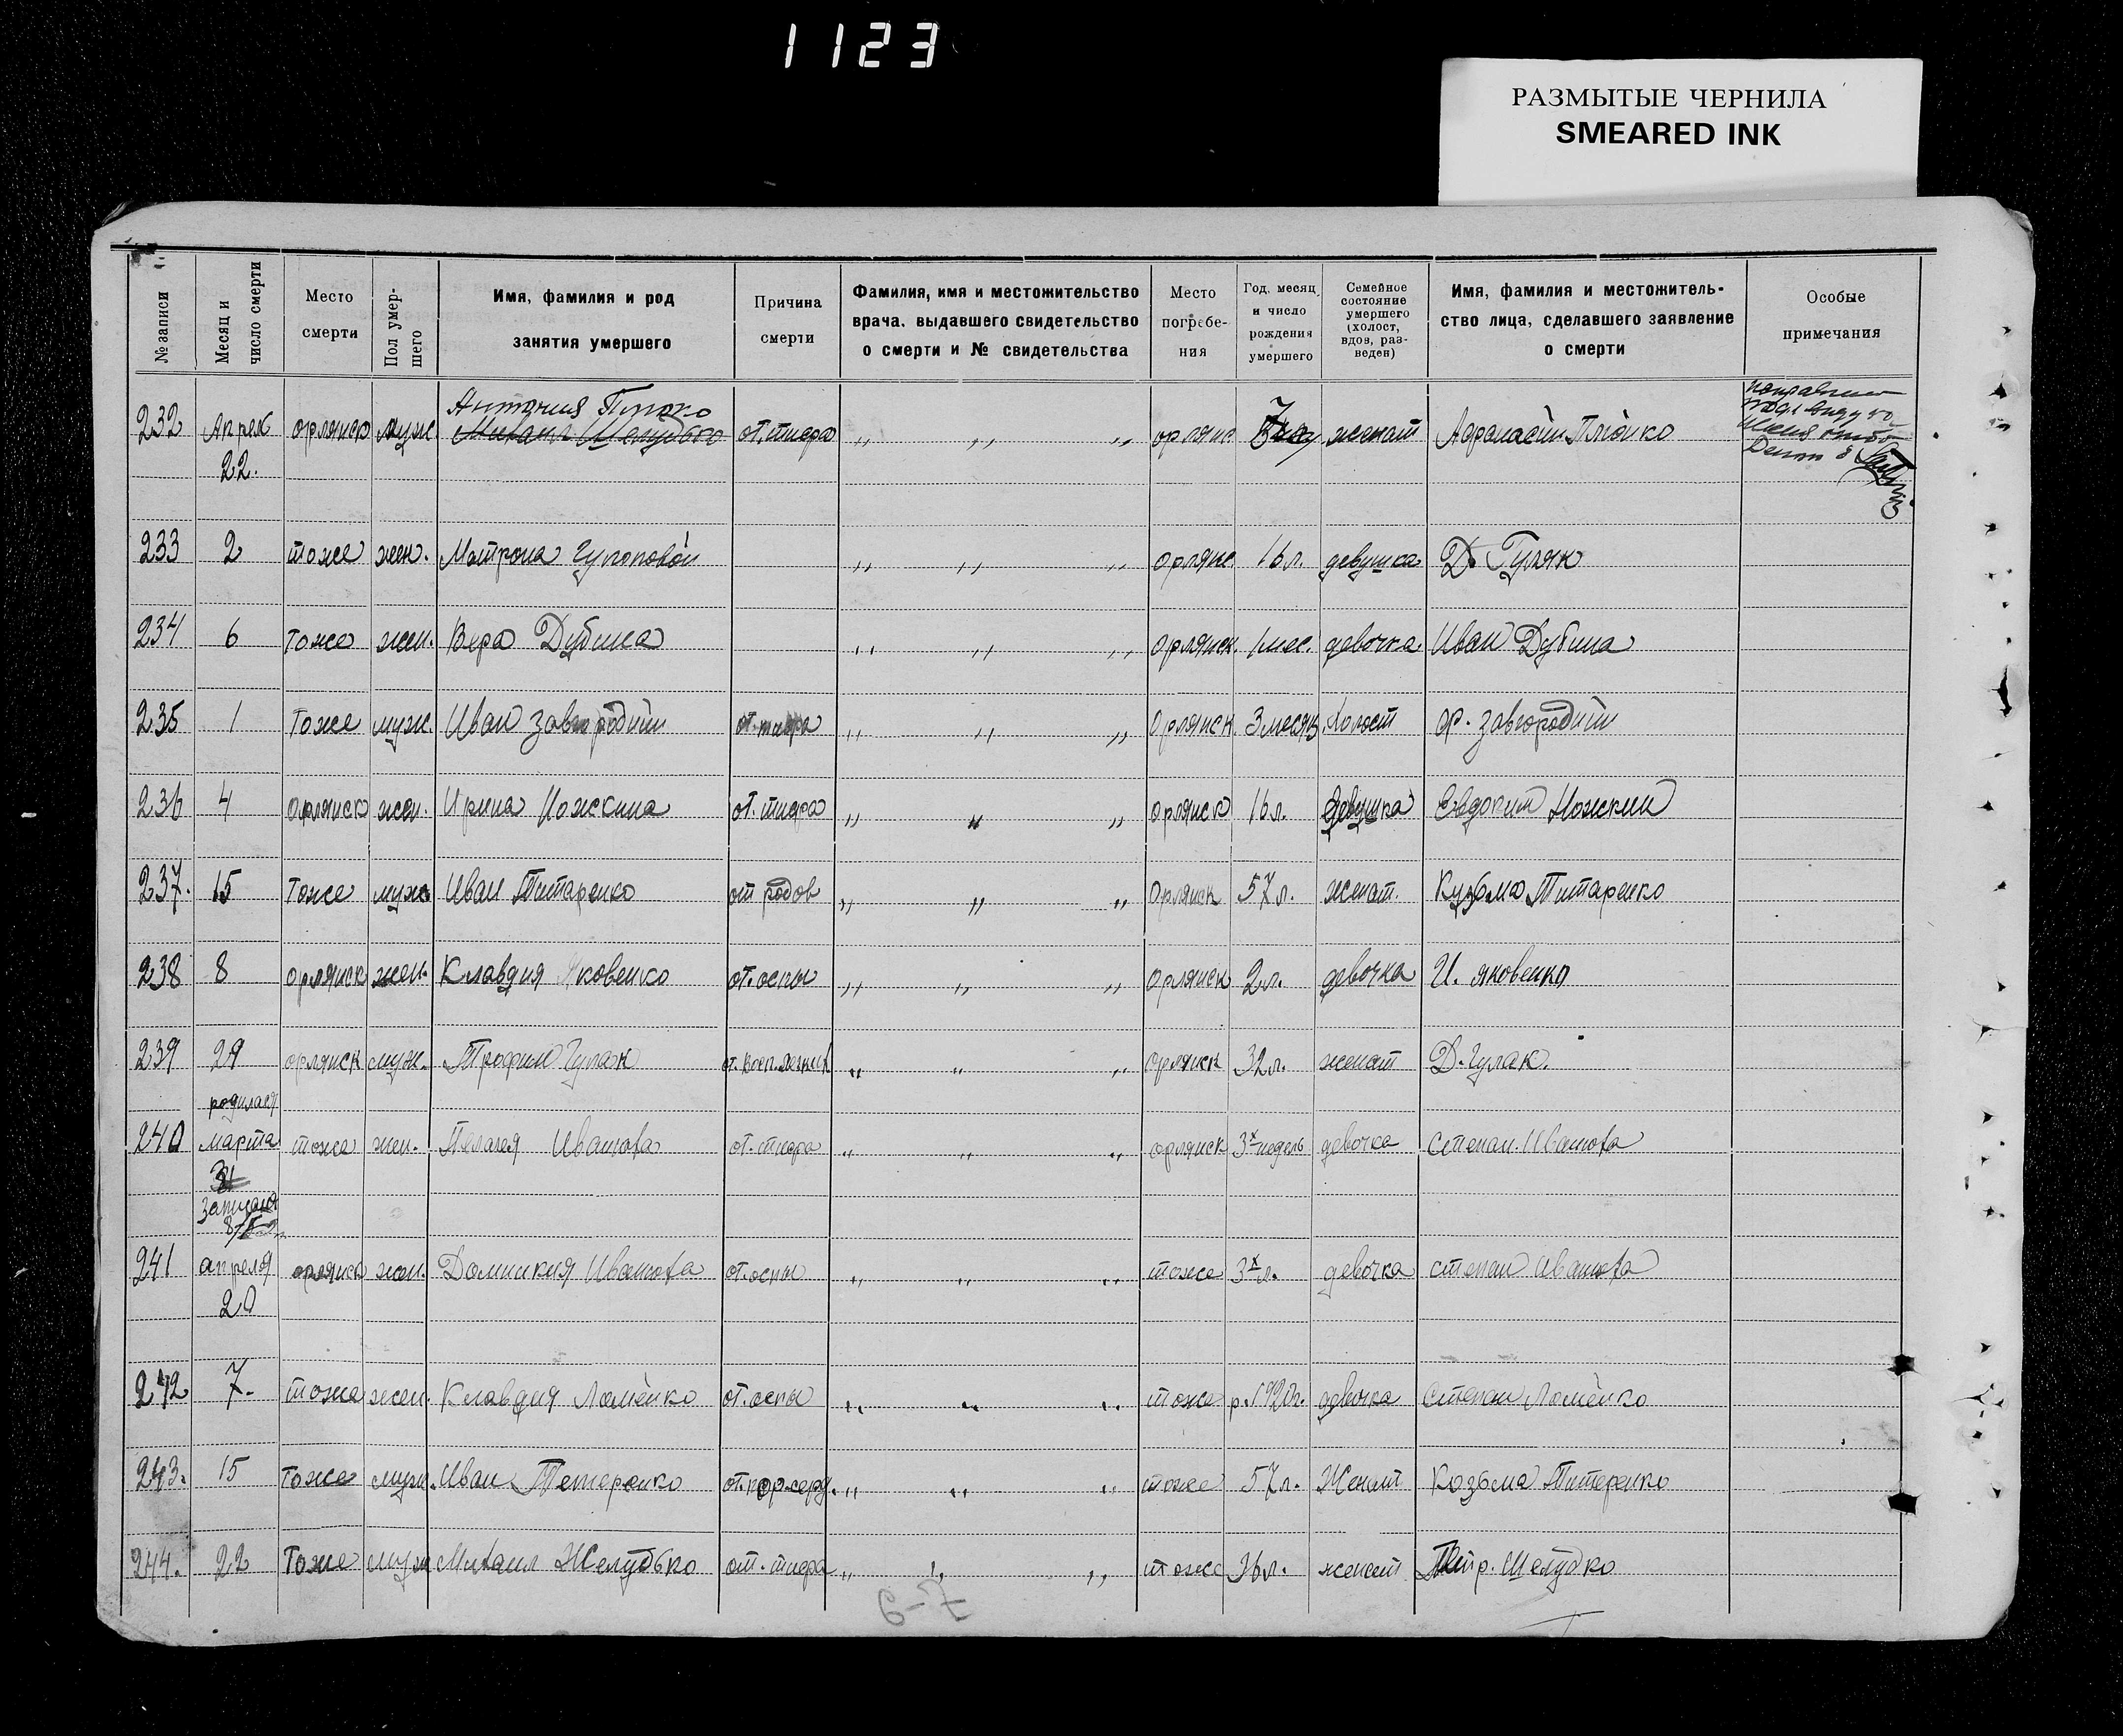 1123
РАЗМЫТЫЕ ЧЕРНИЛА
SMEARED INK
№ записи
Месяц и число смерти
Место смерти
Пол умершего
Имя, фамилия и род занятия умершего
Причина смерти
Фамилия, имя и местожительство врача, выдавшего свидетельство о смерти и № свидетельства
Место погребения
Год, месяц и число рождения умершего
Семейное состояние умершего (холост, вдов, разведен)
Имя, фамилия и местожительство лица, сделавшего заявление о смерти
Особые примечания
Антония Плюйко
232 Апрел орлянск муж Михаил Шелудько от.тифа „ „ „ орлянс. 7 женат Афанасий Плюйко
22.
233 2 тоже жен. Матрона „ „ „ орлянс. 16 л. девушка Д. Гуляк
234 6 тоже жен. Вера Дубина „ „ „ орлянск. 1 мес. девочка Иван Дубина
235 1 тоже муж. Иван Завгородний от.тифа „ „ „ орлянск. 3 месяц. холост Ф. Завгородний
236 4 орлянск жен. Ирина Ножкина от.тифа „ „ „ орлянск 16 л. девушка Евдоким Ножкин
237. 15 тоже муж Иван Титаренко от родов „ „ „ орлянск 57 л. женат. Кузьма Титаренко
238 8 орлянск жен. Клавдия Яковенко от.оспы „ „ „ орлянск 2 л. девочка И. Яковенко
239 29 орлянск муж. Трофим Гулак от.восп.легких „ „ „ орлянск 32 л. женат Д. Гулак.
родилась
240 марта тоже жен. Пелагея Иванюта от.тифа „ „ „ орлянск 3х недель девочка Степан Иванюта
31
записана
241 апреля орлянск жен. Домникия Иванюта от.оспы „ „ „ тоже 3х л. девочка степан Иванюта
20
242 7. тоже жен. Клавдия Ломейко от.оспы „ „ „ тоже р. 1920г. девочка Степан Ломейко
243. 15 тоже муж. Иван Тетеренко от.пор.серд. „ „ „ тоже 57 л. Женат Козьма Титеренко
244. 22 тоже муж Михаил Желудько от.тифа „ „ „ тоже 36 л. женат Петр. Шелудко
7-9